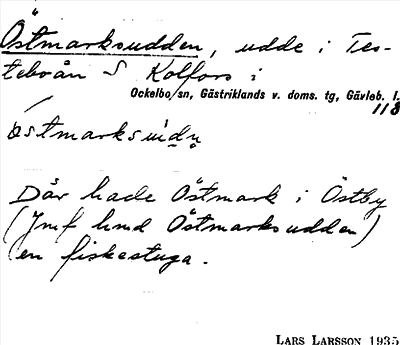 Östmarksudden, udde i Tes-
teboån S Kolfors i
Ockelbo/sn, Gästriklands v. doms. tg, Gävleb. l.
118
Där hade Östmark i Östby
(Jmf hmd Östmarksudden)
en fiskestuga.
LARS LARSSON 1935